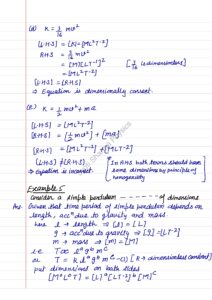 (d) K = 3/16 mv²
[L·H·S] = [K] = [ML²T⁻²]
R·H·S = 3/16 mv²
= [M][LT⁻¹]²
[3/16 is dimensionless]
= [ML²T⁻²]
[L·H·S] = [R·H·S]
⇒ Equation is dimensionally correct
(e) K = 1/2 mv² + ma
[L·H·S] = [ML²T⁻²]
[R·H·S] = [1/2 mv²] + [ma]
[R·H·S] = [ML²T⁻²] + [MLT⁻²]
[L·H·S] ≠ [R·H·S]
⇒ Equation is incorrect
* In RHS both terms should have
same dimensions by principle of
homogeneity
Example 5
Consider a simple pendulum - - - - - - of dimensions
Given that time period of simple pendulum depends on
length, accⁿ due to gravity and mass
here l → length ⇒ [l] = [L]
g → accⁿ due to gravity ⇒ [g] = [LT⁻²]
m → mass ⇒ [m] = [M]
i.e. T ∝ lᵃ gᵇ mᶜ
or T = k lᵃ gᵇ mᶜ —(1) [k → dimensionless constant]
put dimensions on both sides
[M⁰L⁰T] = [L]ᵃ [LT⁻²]ᵇ [M]ᶜ